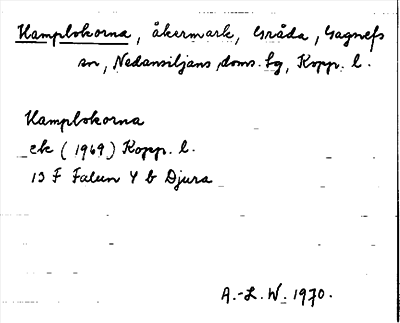 Kamplokorna, åkermark, Gråda, Gagnefs
sn, Nedansiljans doms. lg, Kopp. l.
Kamplokorna
ek (1969) Kopp. l.
13 F Falun 4 b Djura
A.-L. W. 1970.